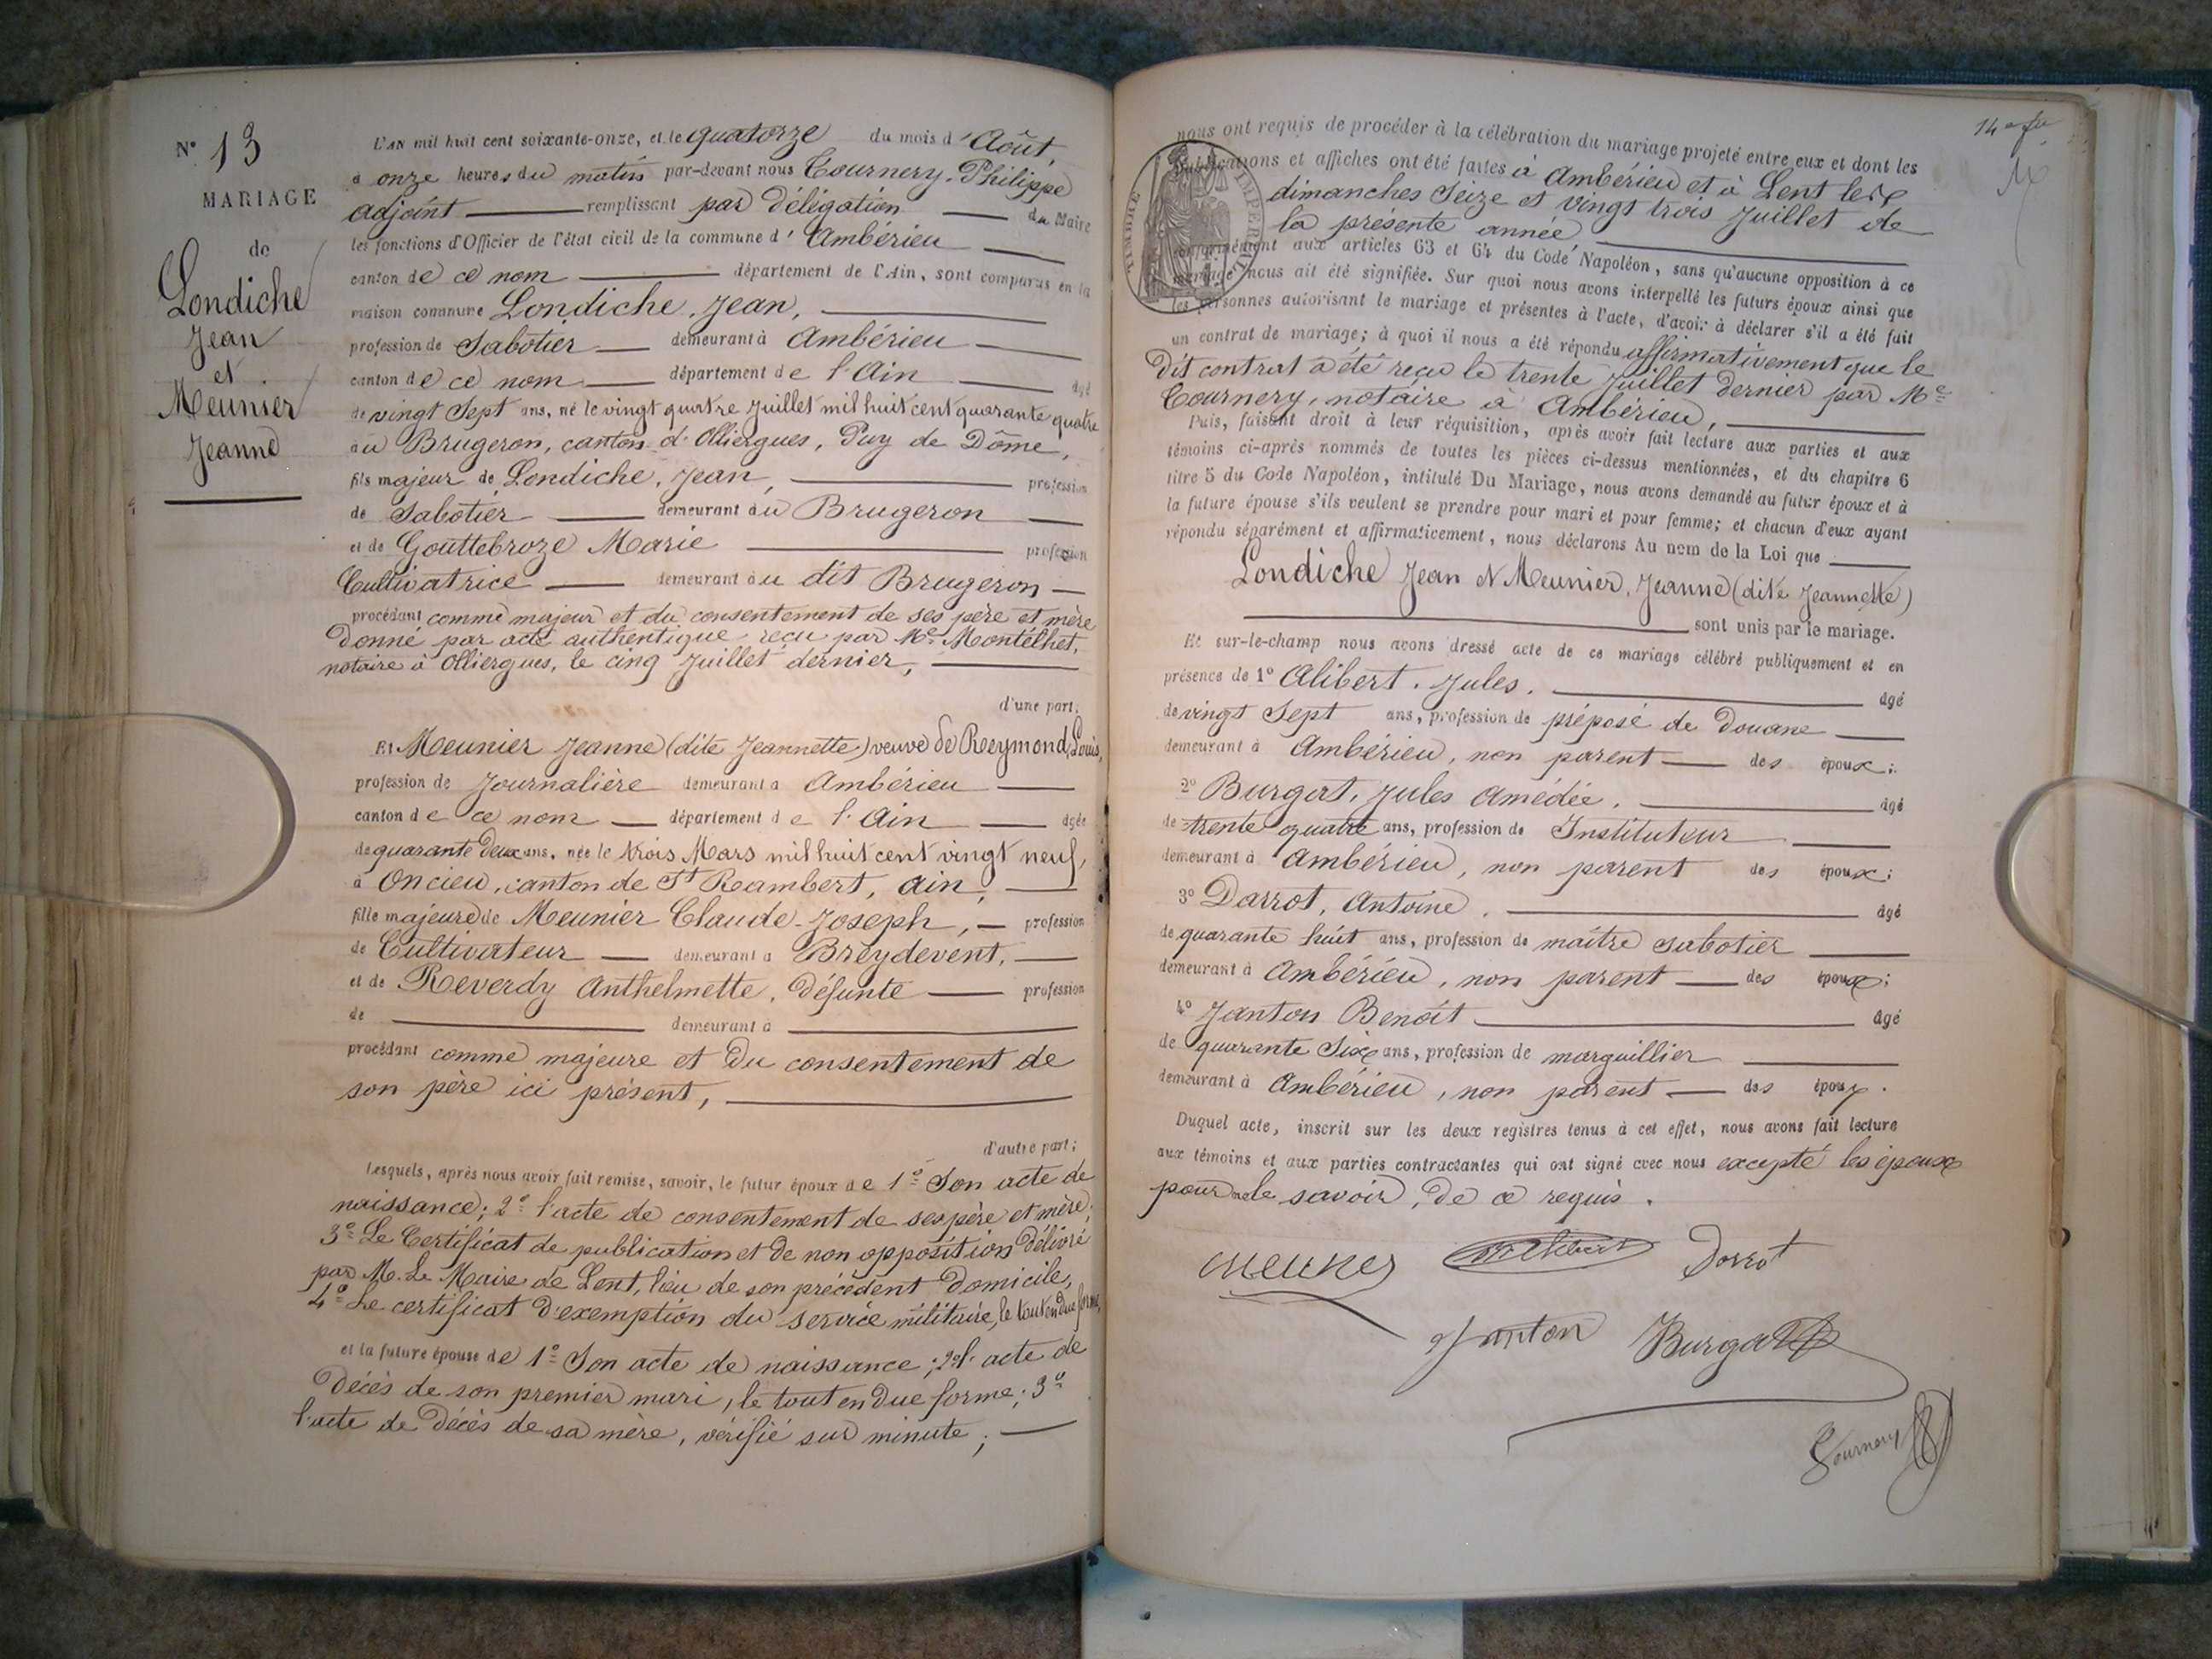 N° 13
MARIAGE
de
Londiche
Jean
et
Meunier
Jeanne
L'AN mil huit cent soixante-onze, et le quatorze du mois d'Août,
à onze heures du matin par-devant nous Tournery, Philippe
adjoint remplissant par délégation du Maire
les fonctions d'Officier de l'état civil de la commune d'Ambérieu
canton de ce nom département de l'Ain, sont comparus en la
maison commune Londiche, Jean,
profession de Sabotier demeurant à Ambérieu
canton de ce nom département de l'Ain âgé
de vingt Sept ans, né le vingt quatre Juillet mil huit cent quarante quatre
au Brugeron, canton d'Olliergues, Puy de Dôme,
fils majeur de Londiche, Jean, profession
de Sabotier demeurant au Brugeron
et de Gouttebroze Marie profession
Cultivatrice demeurant au dit Brugeron
procédant comme majeur et du consentement de ses père et mère
donné par acte authentique reçu par Me Montélhet,
notaire à Olliergues, le cinq Juillet dernier,
d'une part;
Et Meunier Jeanne (dite Jeannette) veuve de Reymond, Louis,
profession de Journalière demeurant à Ambérieu
canton de ce nom département de l'Ain âgée
de quarante deux ans, née le trois Mars mil huit cent vingt neuf,
à Oncieu, canton de St Rambert, Ain,
fille majeure de Meunier Claude-Joseph, profession
de Cultivateur demeurant à Breydevent,
et de Reverdy Anthelmette, défunte profession
de demeurant à
procédant comme majeure et du consentement de
son père ici présent,
d'autre part;
Lesquels, après nous avoir fait remise, savoir, le futur époux de 1° Son acte de
naissance; 2° l'acte de consentement de ses père et mère;
3° Le Certificat de publication et de non opposition délivré
par M. Le Maire de Lent, lieu de son précédent domicile,
4° Le certificat d'exemption du service militaire, le tout en due forme,
et la future épouse de 1° Son acte de naissance; 2° l'acte de
décès de son premier mari, le tout en due forme; 3°
l'acte de décès de sa mère, vérifié sur minute;
14e fu
nous ont requis de procéder à la célébration du mariage projeté entre eux et dont les
publications et affiches ont été faites à Ambérieu et à Lent les
dimanches Seize et vingt trois Juillet de
la présente année
TIMBRE IMPERIAL
conformément aux articles 63 et 64 du Code Napoléon, sans qu'aucune opposition à ce
mariage nous ait été signifiée. Sur quoi nous avons interpellé les futurs époux ainsi que
les personnes autorisant le mariage et présentes à l'acte, d'avoir à déclarer s'il a été fait
un contrat de mariage; à quoi il nous a été répondu affirmativement que le
dit contrat a été reçu le trente Juillet dernier par Me
Tournery, notaire à Ambérieu,
Puis, faisant droit à leur réquisition, après avoir fait lecture aux parties et aux
témoins ci-après nommés de toutes les pièces ci-dessus mentionnées, et du chapitre 6
titre 5 du Code Napoléon, intitulé Du Mariage, nous avons demandé au futur époux et à
la future épouse s'ils veulent se prendre pour mari et pour femme; et chacun d'eux ayant
répondu séparément et affirmativement, nous déclarons Au nom de la Loi que
Londiche Jean et Meunier, Jeanne (dite Jeannette)
sont unis par le mariage.
Et sur-le-champ nous avons dressé acte de ce mariage célébré publiquement et en
présence de 1° Alibert, Jules, âgé
de vingt Sept ans, profession de préposé de douane
demeurant à Ambérieu, non parent des époux;
2° Burgat, Jules Amédée, âgé
de trente quatre ans, profession de Instituteur
demeurant à Ambérieu, non parent des époux;
3° Darrot, Antoine, âgé
de quarante huit ans, profession de maître sabotier
demeurant à Ambérieu, non parent des époux;
4° Janton Benoît âgé
de quarante Six ans, profession de marguillier
demeurant à Ambérieu, non parent des époux.
Duquel acte, inscrit sur les deux registres tenus à cet effet, nous avons fait lecture
aux témoins et aux parties contractantes qui ont signé avec nous excepté les époux
pour ne le savoir, de ce requis.
Meunier Alibert Darrot
Janton Burgat
Tournery